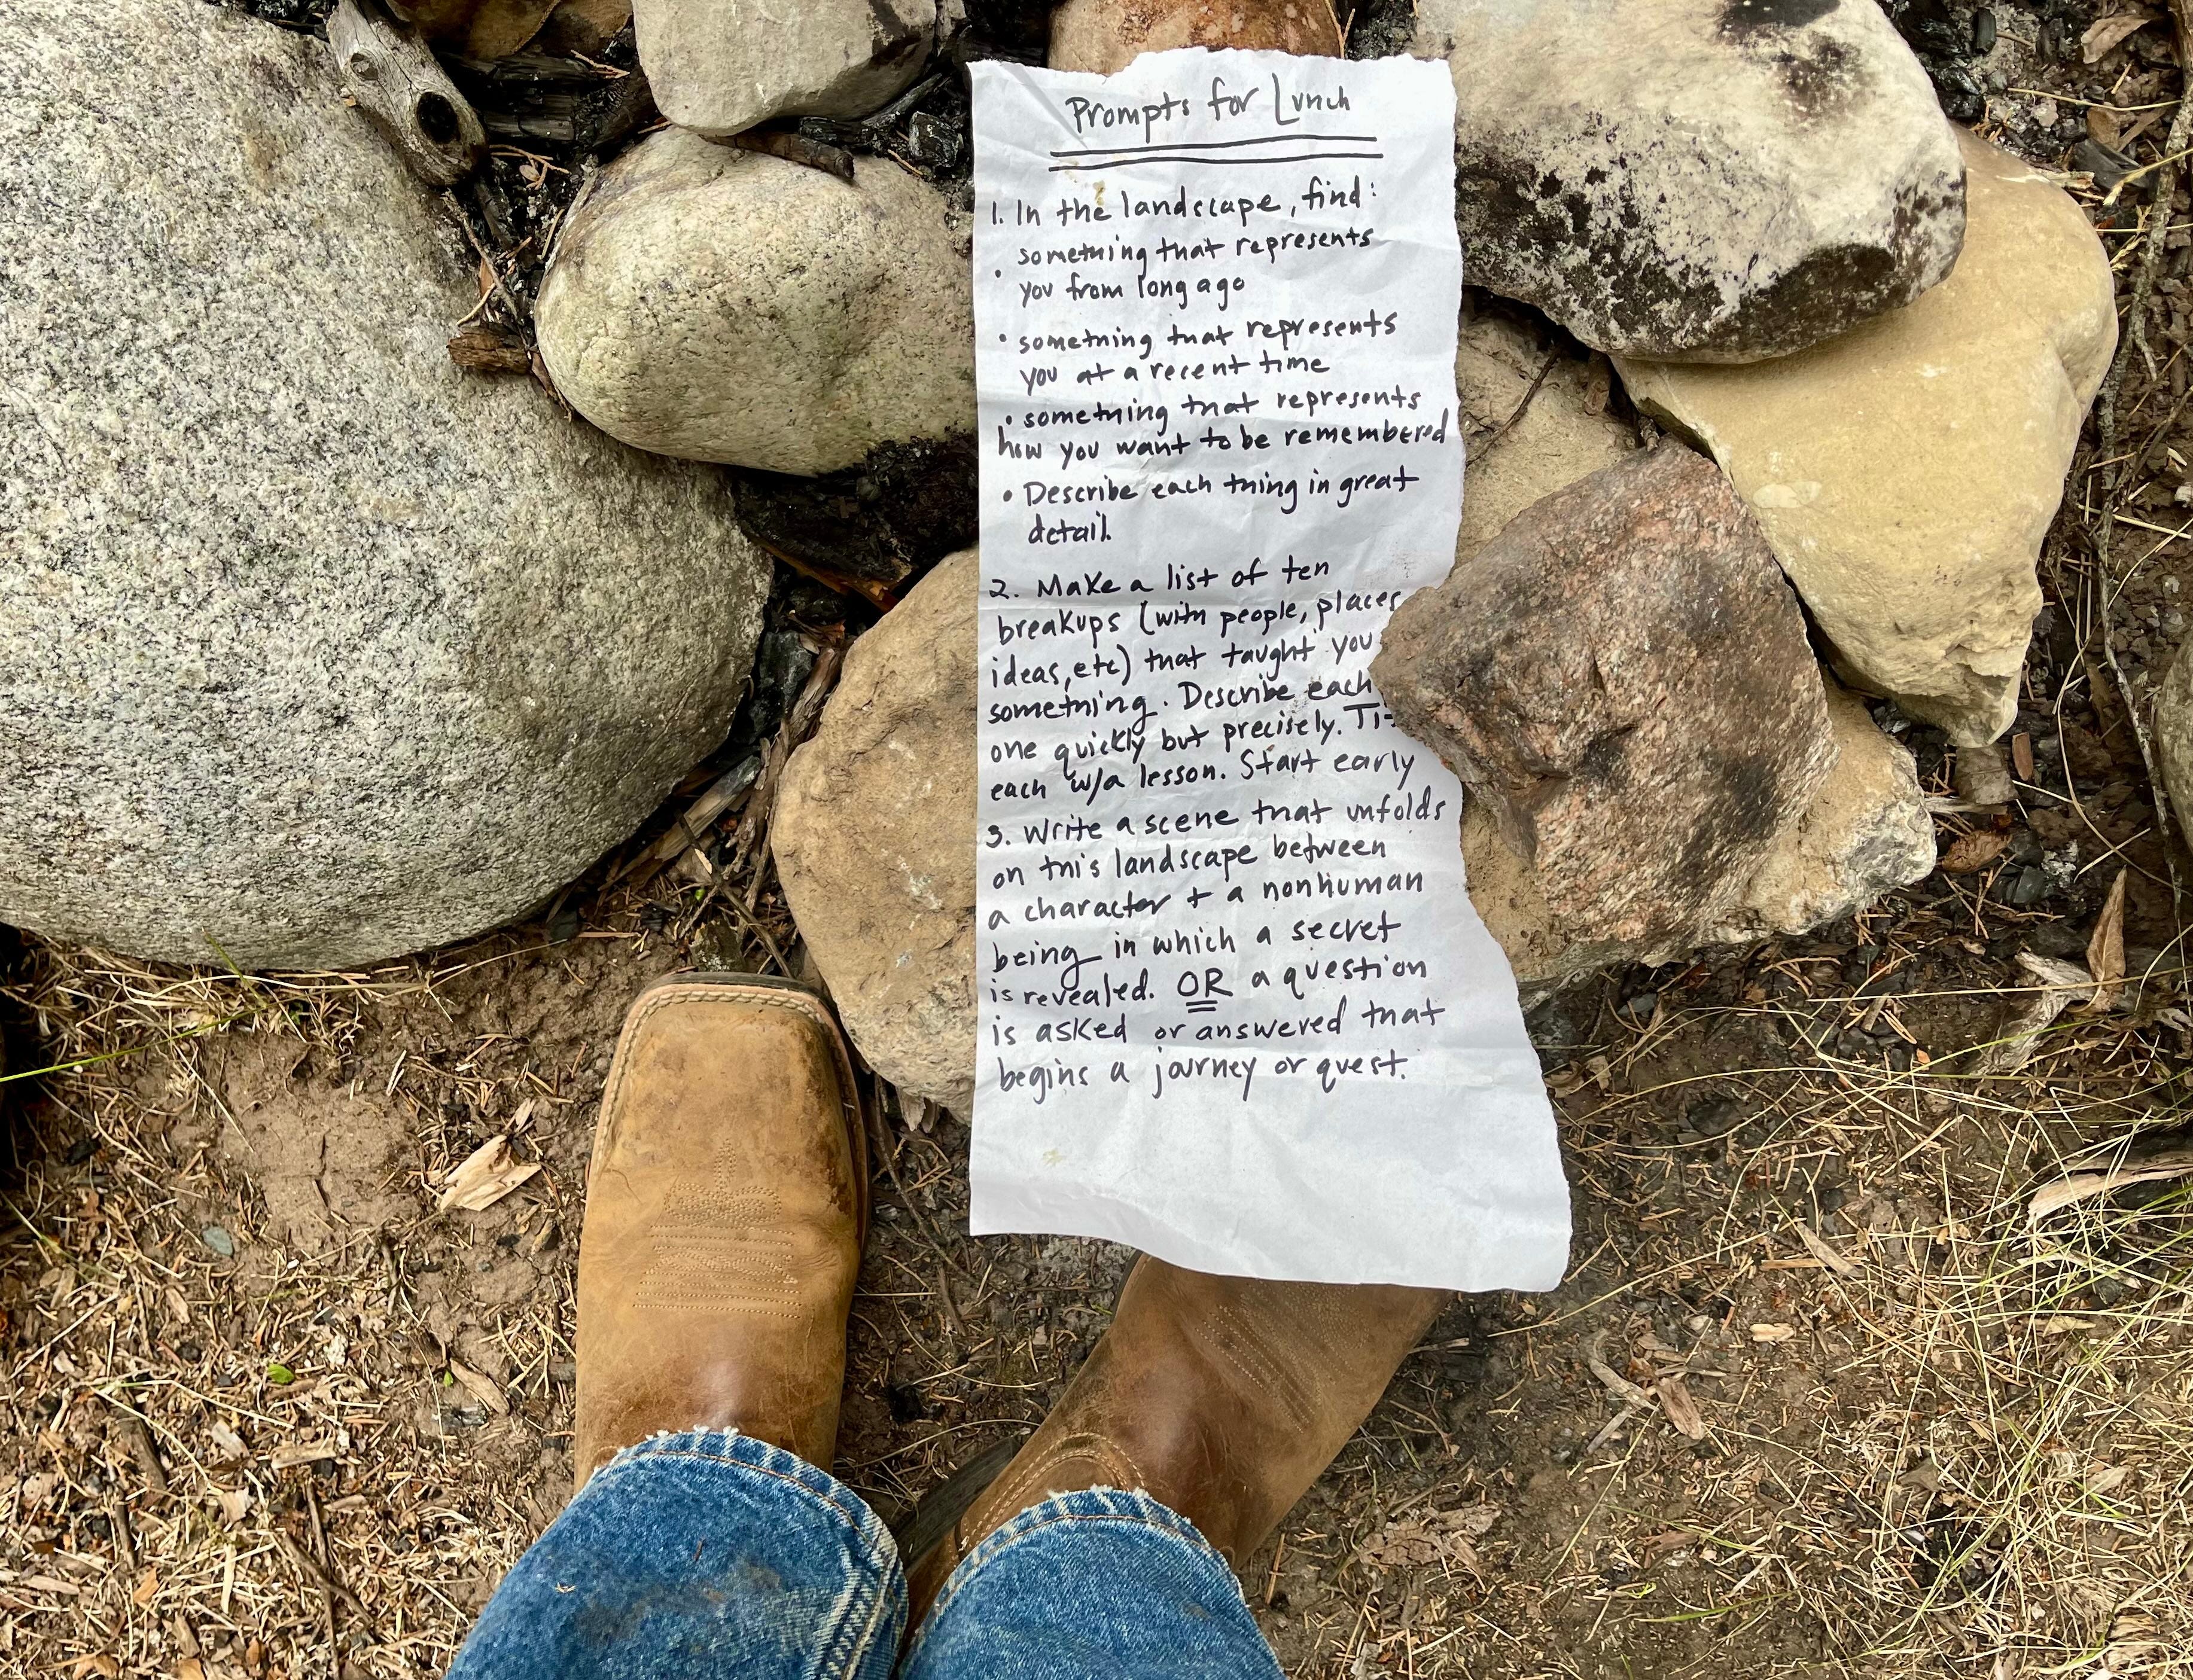 Prompts for Lunch
1. In the landscape, find:
something that represents
• you from long ago
• something that represents
you at a recent time
• something that represents
how you want to be remembered
• Describe each thing in great
detail.
2. Make a list of ten
breakups (with people, places
ideas, etc) that taught you
something. Describe each
one quickly but precisely.
each w/a lesson. Start early
3. Write a scene that unfolds
on this landscape between
a character + a nonhuman
being in which a secret
is revealed. OR a question
is asked or answered that
begins a journey or quest.